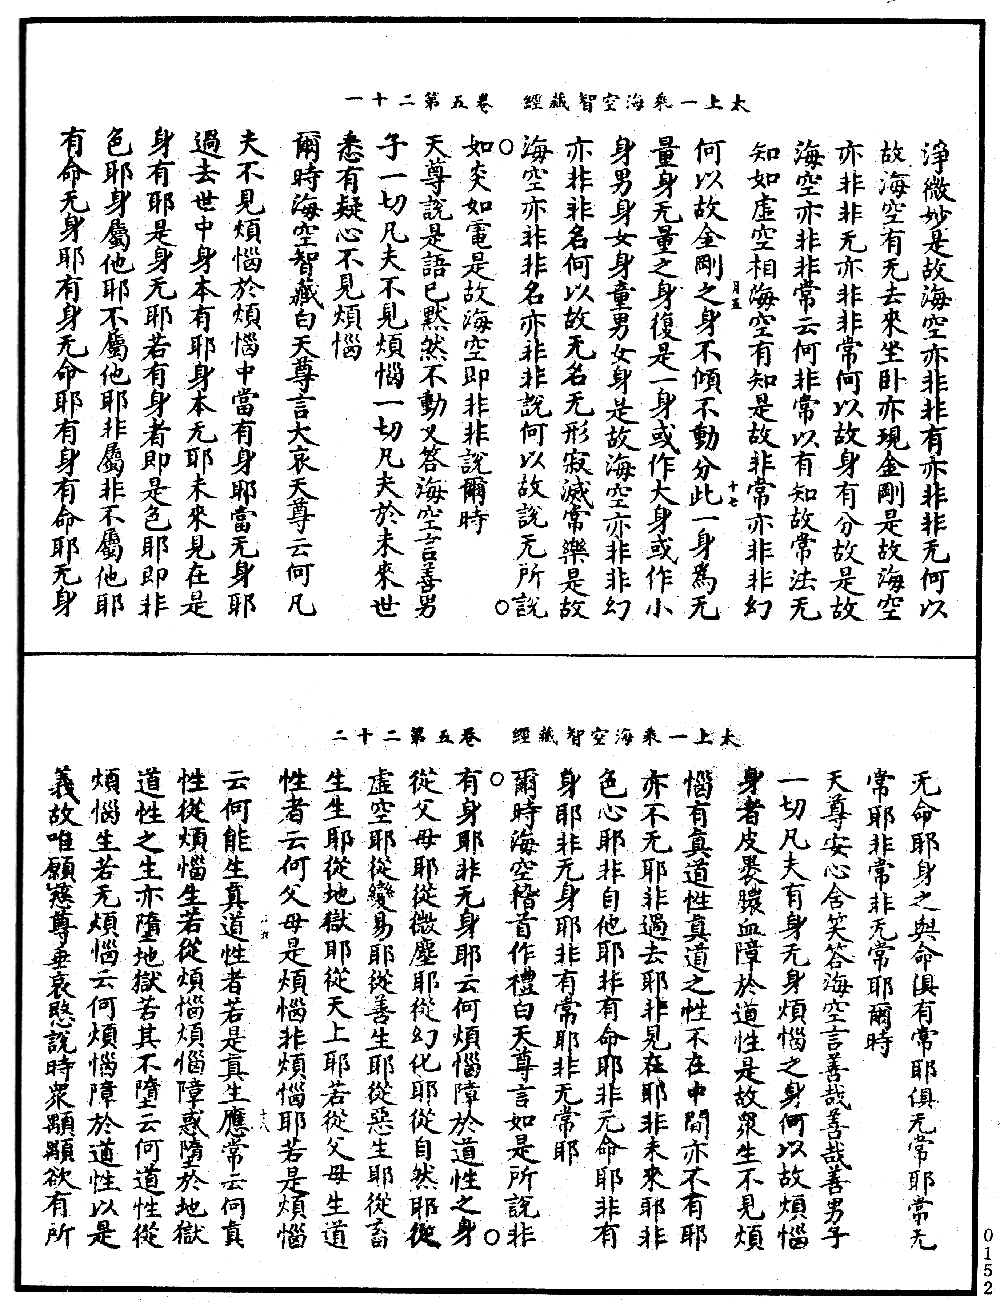 太上一乘海空智藏經 卷五第二十一
淨微妙是故海空亦非非有亦非非无何以
故海空有无去來坐卧亦現金剛是故海空
亦非非无亦非非常何以故身有分故是故
海空亦非非常云何非常以有知故常法无
知如虛空相海空有知是故非常亦非非幻
何以故金剛之身不傾不動分此一身為无
量身无量之身復是一身或作大身或作小
身男身女身童男女身是故海空亦非非幻
亦非非名何以故无名无形寂滅常樂是故
海空亦非非名亦非非說何以故說无所說
如炎如電是故海空即非非說爾時
天尊說是語已默然不動又答海空言善男
子一切凡夫不見煩惱一切凡夫於未來世
悉有疑心不見煩惱
爾時海空智藏白天尊言大哀天尊云何凡
夫不見煩惱於煩惱中當有身耶當无身耶
過去世中身本有耶身本无耶未來見在是
身有耶是身无耶若有身者即是色耶即非
色耶身屬他耶不屬他耶非屬非不屬他耶
有命无身耶有身无命耶有身有命耶无身
太上一乘海空智藏經 卷五第二十二
无命耶身之與命俱有常耶俱无常耶常无
常耶非常非无常耶爾時
天尊安心含笑答海空言善哉善哉善男子
一切凡夫有身无身煩惱之身何以故煩惱
身者皮畏膿血障於道性是故眾生不見煩
惱有真道性真道之性不在中間亦不有耶
亦不无耶非過去耶非見在耶非未來耶非
色心耶非自他耶非有命耶非无命耶非有
身耶非无身耶非有常耶非无常耶
爾時海空稽首作禮白天尊言如是所說非
有身耶非无身耶云何煩惱障於道性之身
從父母耶從微塵耶從幻化耶從自然耶從
虛空耶從變易耶從善生耶從惡生耶從畜
生生耶從地獄耶從天上耶若從父母生道
性者云何父母是煩惱非煩惱耶若是煩惱
云何能生真道性者若是真生應常云何真
性從煩惱生若從煩惱煩惱障惑墮於地獄
道性之生亦墮地獄若其不墮云何道性從
煩惱生若无煩惱云何煩惱障於道性以是
義故唯願慈尊垂哀愍說時眾顒顒欲有所
0152